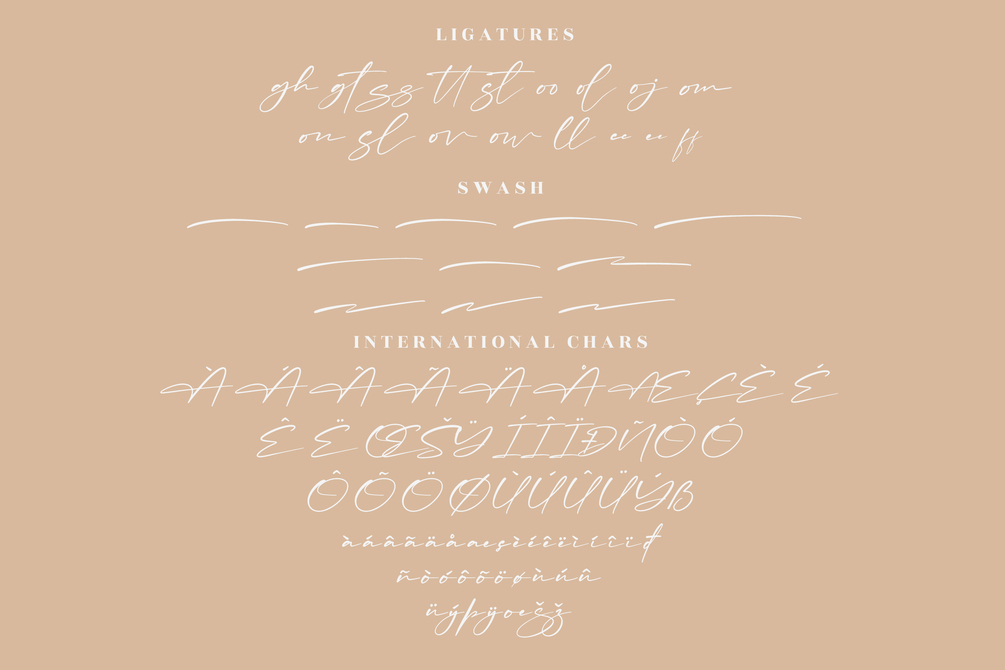 LIGATURES
gh gt ss tt st oo d oj om
on sl ov ow ll ee ee ff
SWASH
INTERNATIONAL CHARS
À Á Â Ã Ä Å Æ Ç È É
Ê Ë Œ Š Ÿ Í Î Ï Ð Ñ Ò Ó
Ô Õ Ö Ø Ù Ú Û Ü Ý ß
à á â ã ä å æ ç è é ê ë ì í î ï đ
ñ ò ó ô õ ö ø ù ú û
ü ý þ ÿ œ š ž